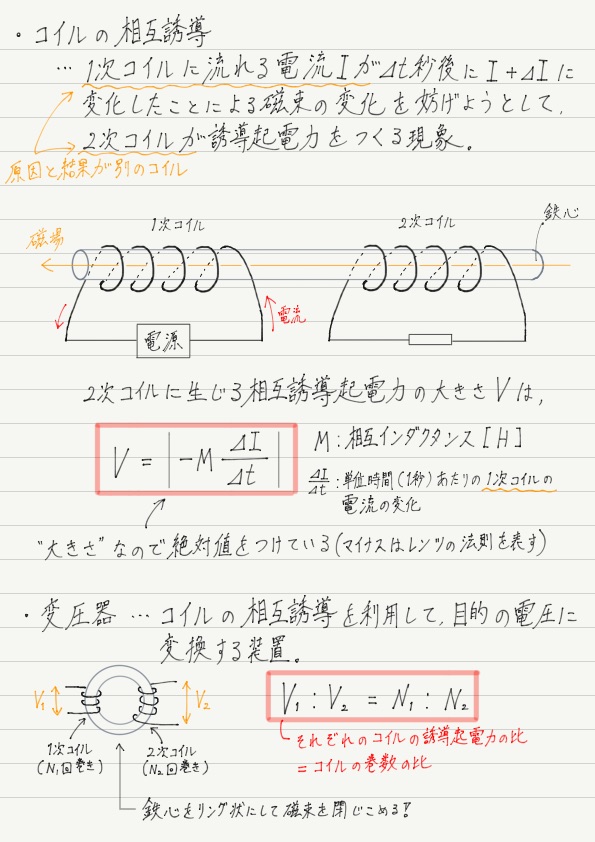 ・コイルの相互誘導
… 1次コイルに流れる電流IがΔt秒後にI+ΔIに
変化したことによる磁束の変化を妨げようとして,
2次コイルが誘導起電力をつくる現象。
原因と結果が別のコイル
1次コイル
2次コイル
鉄心
磁場
電流
電源
2次コイルに生じる相互誘導起電力の大きさVは,
V = |-M ΔI/Δt|
M:相互インダクタンス[H]
ΔI/Δt:単位時間(1秒)あたりの1次コイルの
電流の変化
"大きさ"なので絶対値をつけている(マイナスはレンツの法則を表す)
・変圧器 … コイルの相互誘導を利用して,目的の電圧に
変換する装置。
V₁
V₂
V₁ : V₂ = N₁ : N₂
それぞれのコイルの誘導起電力の比
=コイルの巻数の比
1次コイル
(N₁回巻き)
2次コイル
(N₂回巻き)
鉄心をリング状にして磁束を閉じこめる!